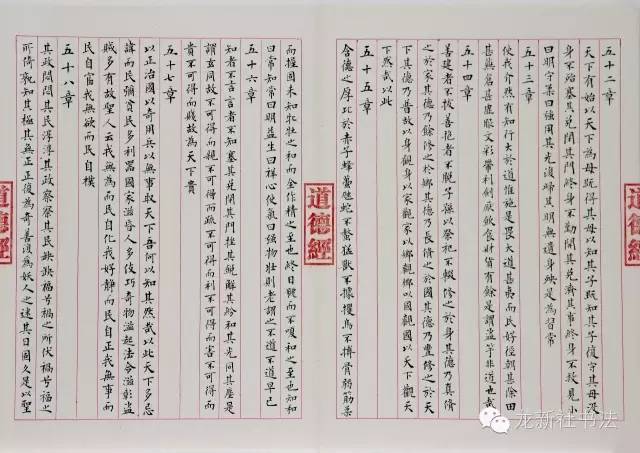 五十二章
天下有始以天下為母既得其母以知其子既知其子復守其母没
身不殆塞其兑閉其門終身不勤開其兑濟其事終身不救見小
曰明守柔曰强用其光復歸其明無遺身殃是為習常
五十三章
使我介然有知行大於道惟施是畏大道甚夷而民好徑朝甚除田
甚蕪倉甚虛服文彩帶利劍厭飲食財貨有餘是謂盜竽非道也哉
五十四章
善建者不拔善抱者不脫子孫以祭祀不輟修之於身其德乃真修
之於家其德乃餘修之於鄉其德乃長修之於國其德乃豐修之於天
下其德乃普故以身觀身以家觀家以鄉觀鄉以國觀國以天下觀天
下然哉以此
五十五章
含德之厚比於赤子蜂蠆虺蛇不螫猛獸不據攫鳥不搏骨弱筋柔
道德經
而握固未知牝牡之和而全作精之至也終日號而不嗄和之至也知和
曰常知常曰明益生曰祥心使氣曰强物壯則老謂之不道不道早已
五十六章
知者不言言者不知塞其兑閉其門挫其銳解其紛和其光同其塵是
謂玄同故不可得而親不可得而疏不可得而利不可得而害不可得而
貴不可得而賤故為天下貴
五十七章
以正治國以奇用兵以無事取天下吾何以知其然哉以此天下多忌
諱而民彌貧民多利器國家滋昏人多伎巧奇物滋起法令滋彰盜
賊多有故聖人云我無為而民自化我好靜而民自正我無事而
民自富我無欲而民自樸
五十八章
其政悶悶其民淳淳其政察察其民缺缺福兮福之所伏福兮福之
所倚孰知其極其無正正復為奇善復為妖人之迷其日固久是以聖
道德經
道德經
龙新社书法